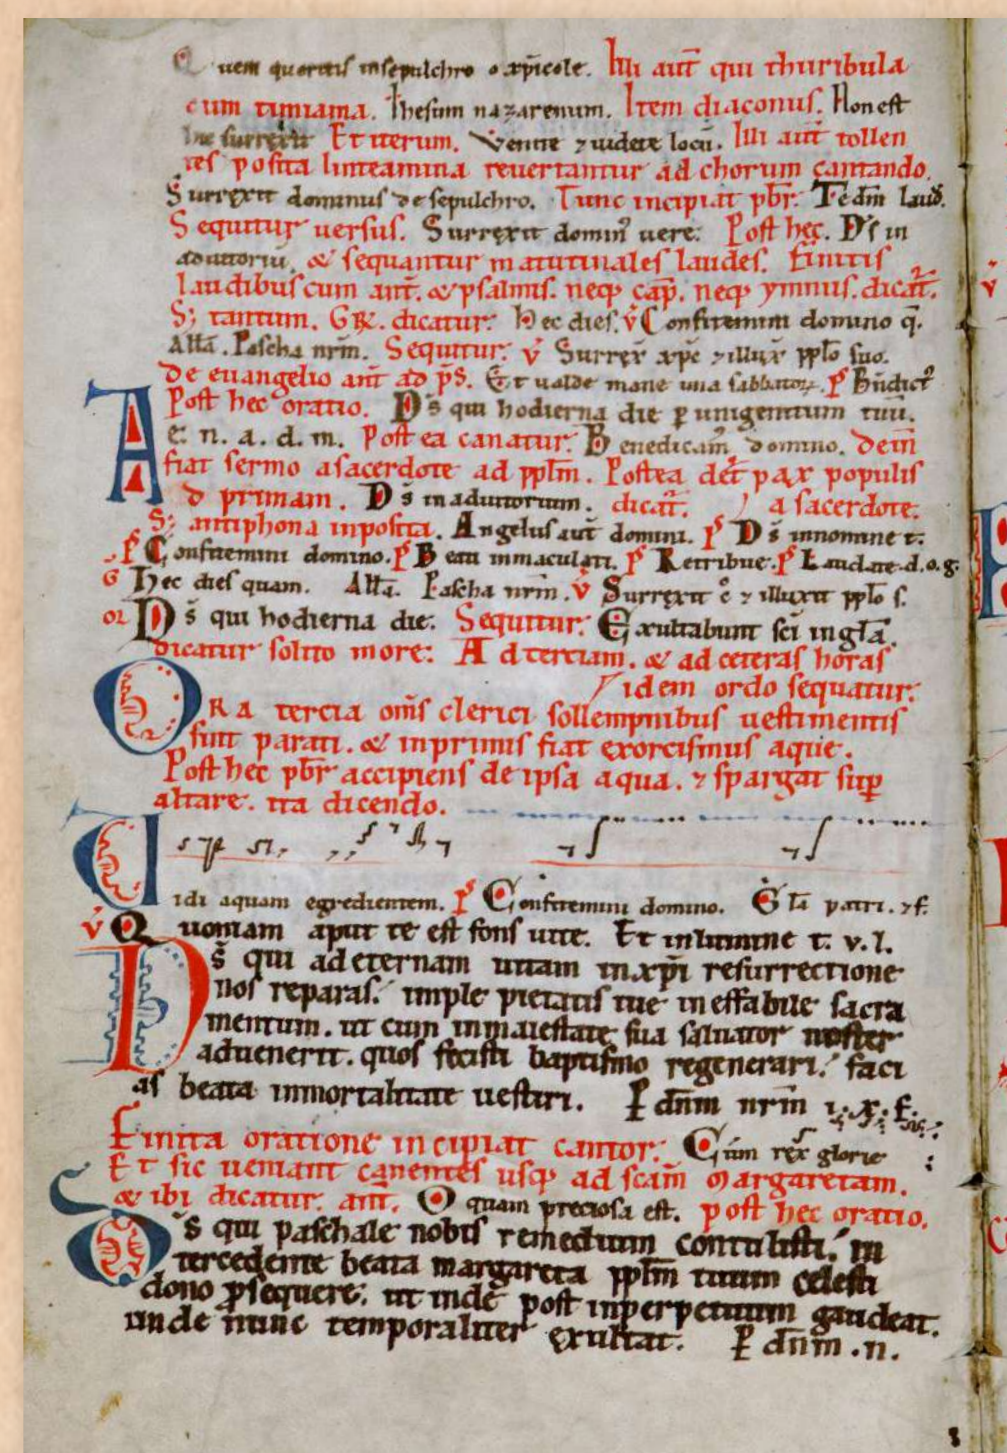 Quem queritis in sepulchro o xp̄icole. Illi aut̄ qui thuribula
cum timiama. Ihesum nazarenum. Item diaconus. Non est
hic surrexit Et iterum. Venite ⁊ uidete locū. Illi aut̄ tollen
tes posita linteamina reuertantur ad chorum cantando.
Surrexit dominus de sepulchro. Tunc incipiat pb̄r. Te dm̄ laud̄.
Sequitur uersus. Surrexit domin⁹ uere. Post hęc. D̄s in
adiutoriū. & sequantur matutinales laudes. Finitis
laudibus cum ant̄. & psalmis. neq; cap̄. neq; ymnus. dicat̄.
S; tantum. GR̄. dicatur. Hec dies. v̄ Confitemini domino q̄.
Allā. Pascha nr̄m. Sequitur. v̄ Surrex̄ xp̄c ⁊ illux̄ pp̄lo suo.
De euangelio ant̄ ad p̄s. Et ualde mane una sabbatoꝝ. P̄ Bn̄dict⁹
Post hec oratio. D̄s qui hodierna die ꝑ unigenitum tuū.
e. n. a. d. m. Post ea canatur. Benedicam̄ domino. Dein̄
fiat sermo a sacerdote ad pp̄lm. Postea det̄ pax populis
Ad primam. D̄s in adiutorium. dicat̄. a sacerdote.
S; antiphona inposita. Angelus aut̄ domini. P̄ D̄s in nomine t.
P̄ Confitemini domino. P̄ Beati inmaculati. P̄ Retribue. P̄ Laudate. d. o. g.
G Hec dies quam. Allā. Pascha nr̄m. v̄ Surrexit ⁊ illuxit pp̄lo s.
oꝛ D̄s qui hodierna die. Sequitur. Exultabunt sc̄i in gl̄a.
dicatur solito more. Ad terciam. & ad ceteras horas
idem ordo sequatur.
ORA tercia om̄s clerici sollempnibus uestimentis
sint parati. & inprimis fiat exorcismus aque.
Post hec pb̄r accipiens de ipsa aqua. ⁊ spargat suꝑ
altare. ita dicendo.
Vidi aquam egredientem. P̄ Confitemini domino. Gl̄a patri. ⁊ f.
v̄ Quoniam aput te est fons uite. Et in lumine t. v. l.
D̄s qui ad eternam uitam in xp̄i resurrectione
nos reparas. imple pietatis tue ineffabile sacra
mentum. ut cum in maiestate sua saluator noster
aduenerit. quos fecisti baptismo regenerari. faci
as beata inmortalitate uestiri. P̄ dn̄m nr̄m i. x. f.
Finita oratione incipiat cantor. Cum rex glorie
Et sic ueniant canentes usq; ad scām Margaretam.
& ibi dicatur. ant̄. O quam preciosa est. post hec oratio.
D̄s qui paschale nobis remedium contulisti. in
tercedente beata margareta pp̄lm tuum celesti
dono ꝓsequere. ut inde post inperpetuum gaudeat.
unde nunc temporaliter exultat. P̄ dn̄m. n.